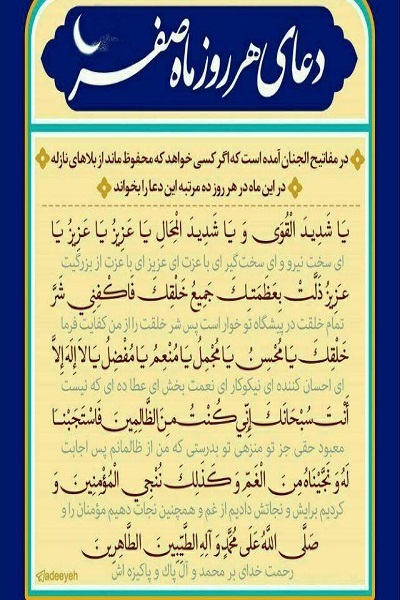 دعای هر روز ماه صفر
در مفاتیح الجنان آمده است که اگر کسی خواهد که محفوظ ماند از بلاهای نازله
در این ماه در هر روز ده مرتبه این دعا را بخواند
یَا شَدِیدَ الْقُوَی وَ یَا شَدِیدَ الْمِحَالِ یَا عَزِیزُ یَا عَزِیزُ یَا
ای سخت نیرو و ای سخت‌گیر ای با عزت ای عزیز ای با عزت از بزرگیت
عَزِیزُ ذَلَّتْ بِعَظَمَتِكَ جَمِیعُ خَلْقِكَ فَاكْفِنِي شَرَّ
تمام خلقت در پیشگاه تو خوار است پس شر خلقت را از من کفایت فرما
خَلْقِكَ یَا مُحْسِنُ یَا مُجْمِلُ یَا مُنْعِمُ یَا مُفْضِلُ یَا لَا إِلَهَ إِلَّا
ای احسان کننده ای نیکوکار ای نعمت بخش ای عطا ده ای که نیست
أَنْتَ سُبْحَانَكَ إِنِّي كُنْتُ مِنَ الظَّالِمِینَ فَاسْتَجَبْنَا
معبود حقی جز تو منزهی تو بدرستی که من از ظالمانم پس اجابت
لَهُ وَ نَجَّیْنَاهُ مِنَ الْغَمِّ وَ كَذَلِكَ نُنْجِي الْمُؤْمِنِینَ وَ
کردیم برایش و نجاتش دادیم از غم و همچنین نجات دهیم مؤمنان را و
صَلَّی اللهُ عَلَی مُحَمَّدٍ وَ آلِهِ الطَّیِّبِینَ الطَّاهِرِینَ
رحمت خدای بر محمد و آل پاك و پاکیزه اش
adeeyeh